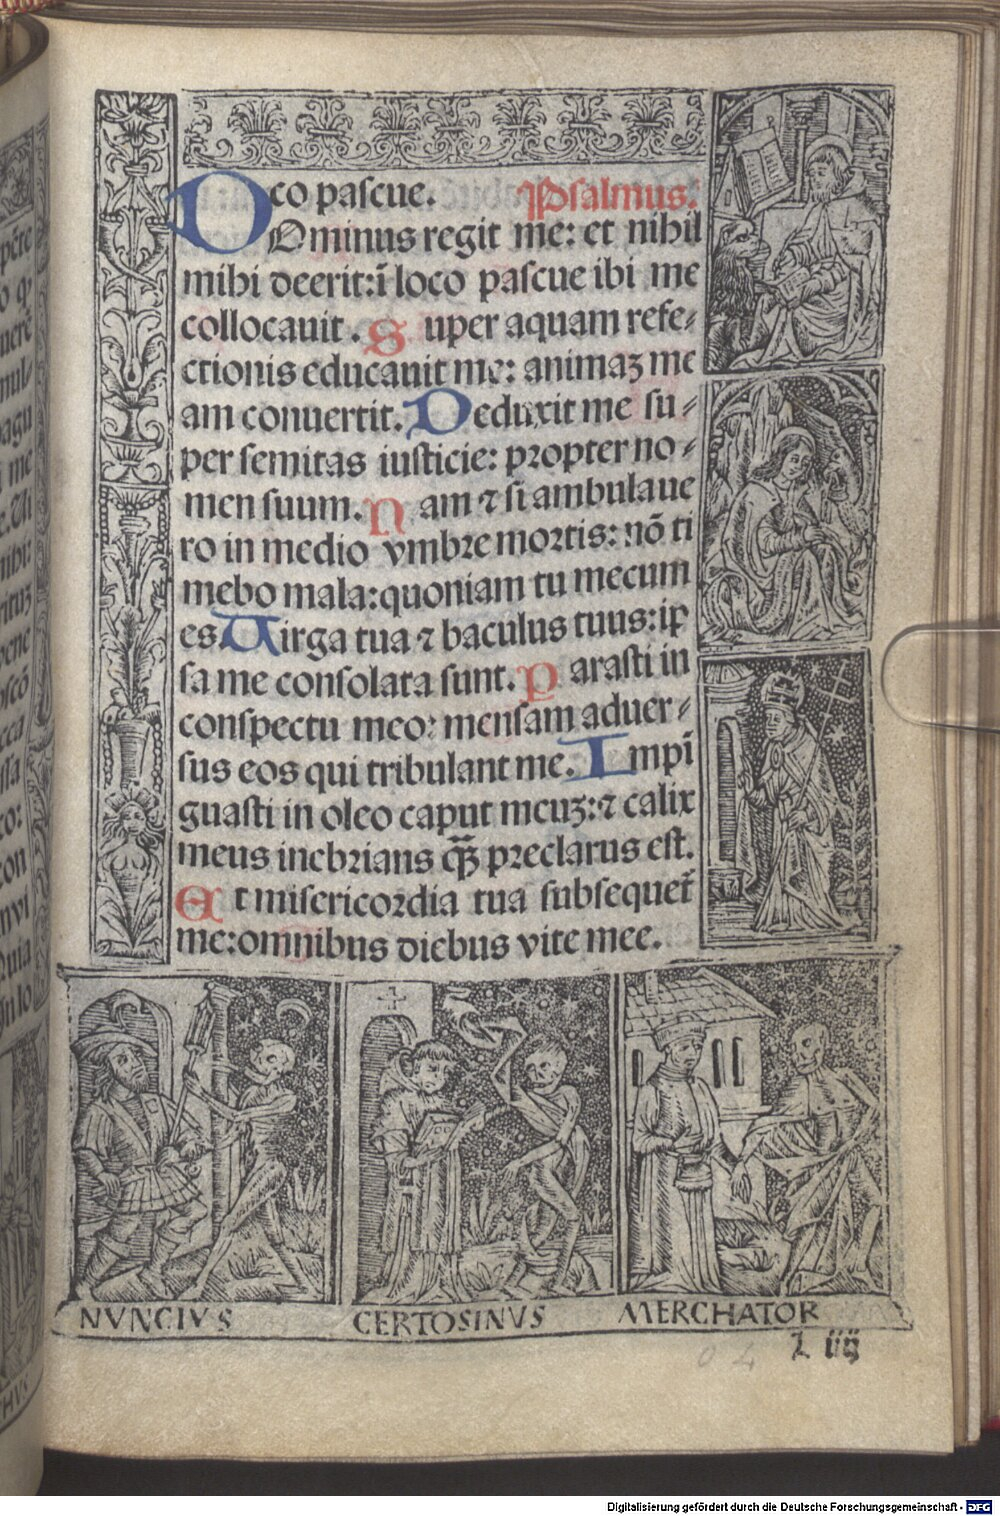 co pascue. Psalmus.
Dominus regit me: et nihil
mihi deerit: ī loco pascue ibi me
collocauit. Super aquam refe-
ctionis educauit me: animaʒ me
am conuertit. Deduxit me su-
per semitas iusticie: propter no-
men suum. Nam ⁊ si ambulaue
ro in medio vmbre mortis: nō ti
mebo mala: quoniam tu mecum
es Uirga tua ⁊ baculus tuus: ip
sa me consolata sunt. Parasti in
conspectu meo: mensam aduer-
sus eos qui tribulant me. Impī
guasti in oleo caput meuʒ: ⁊ calix
meus inebrians q̄ʒ preclarus est.
Et misericordia tua subsequet᷑
me: omnibus diebus vite mee.
NVNCIVS CERTOSINVS MERCHATOR
Digitalisierung gefördert durch die Deutsche Forschungsgemeinschaft - DFG